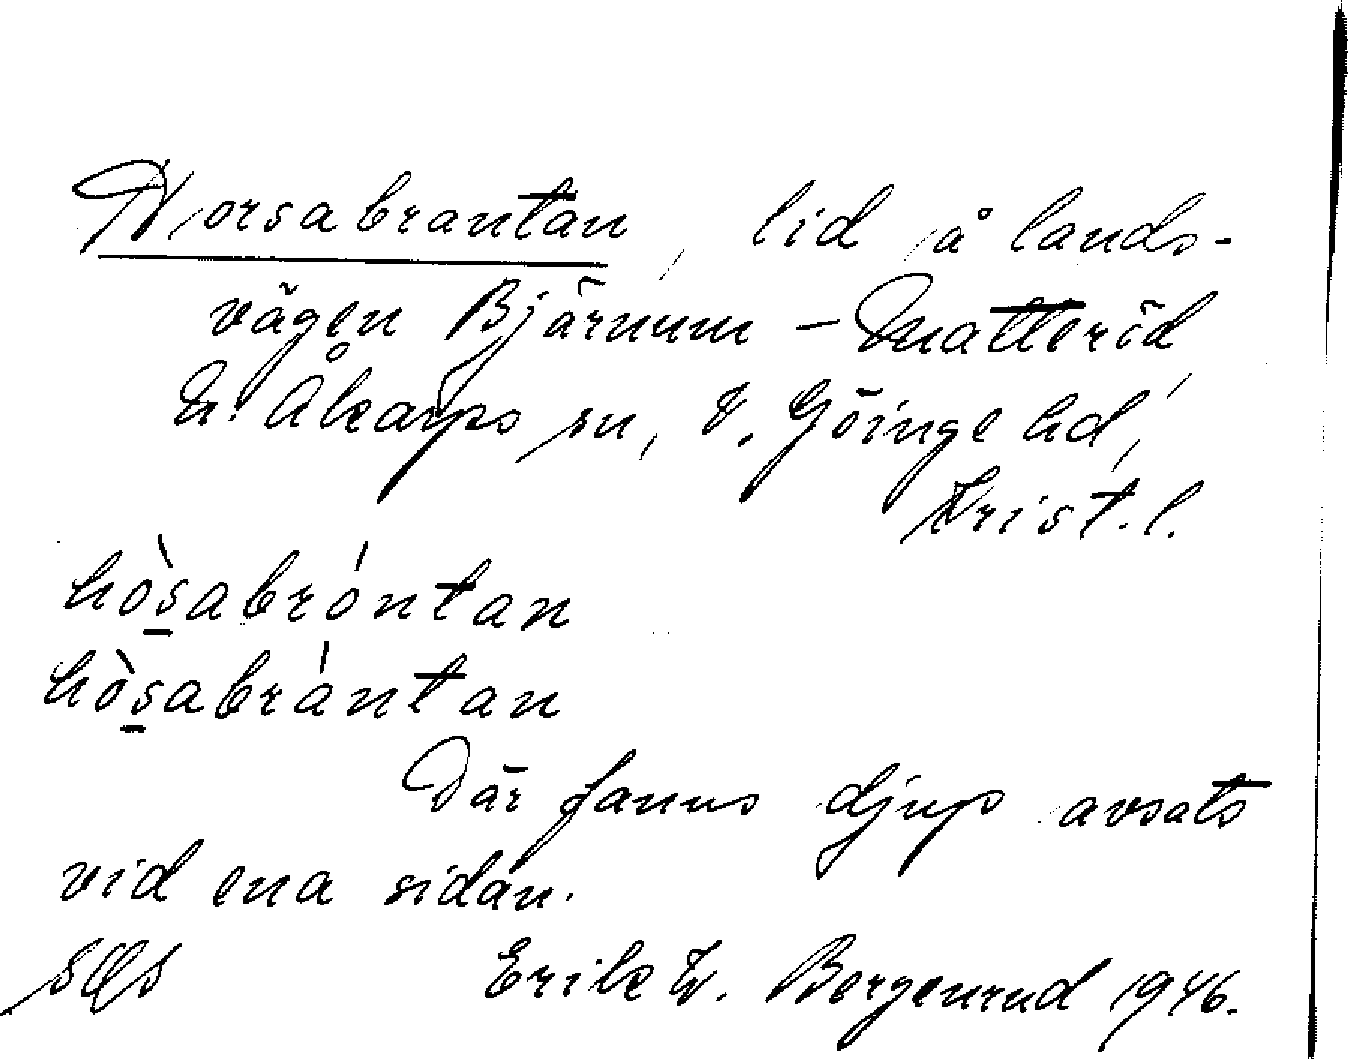 Horsabrantan, lid å lands-
vägen Bjärnum – Matteröd,
N. Åkarps sn, V. Göinge hd,
Krist. l.
hòs̱abróntan
hòs̱abrántan
Där fanns djup avsats
vid ena sidan.
Erik W. Bergenrud 1946.